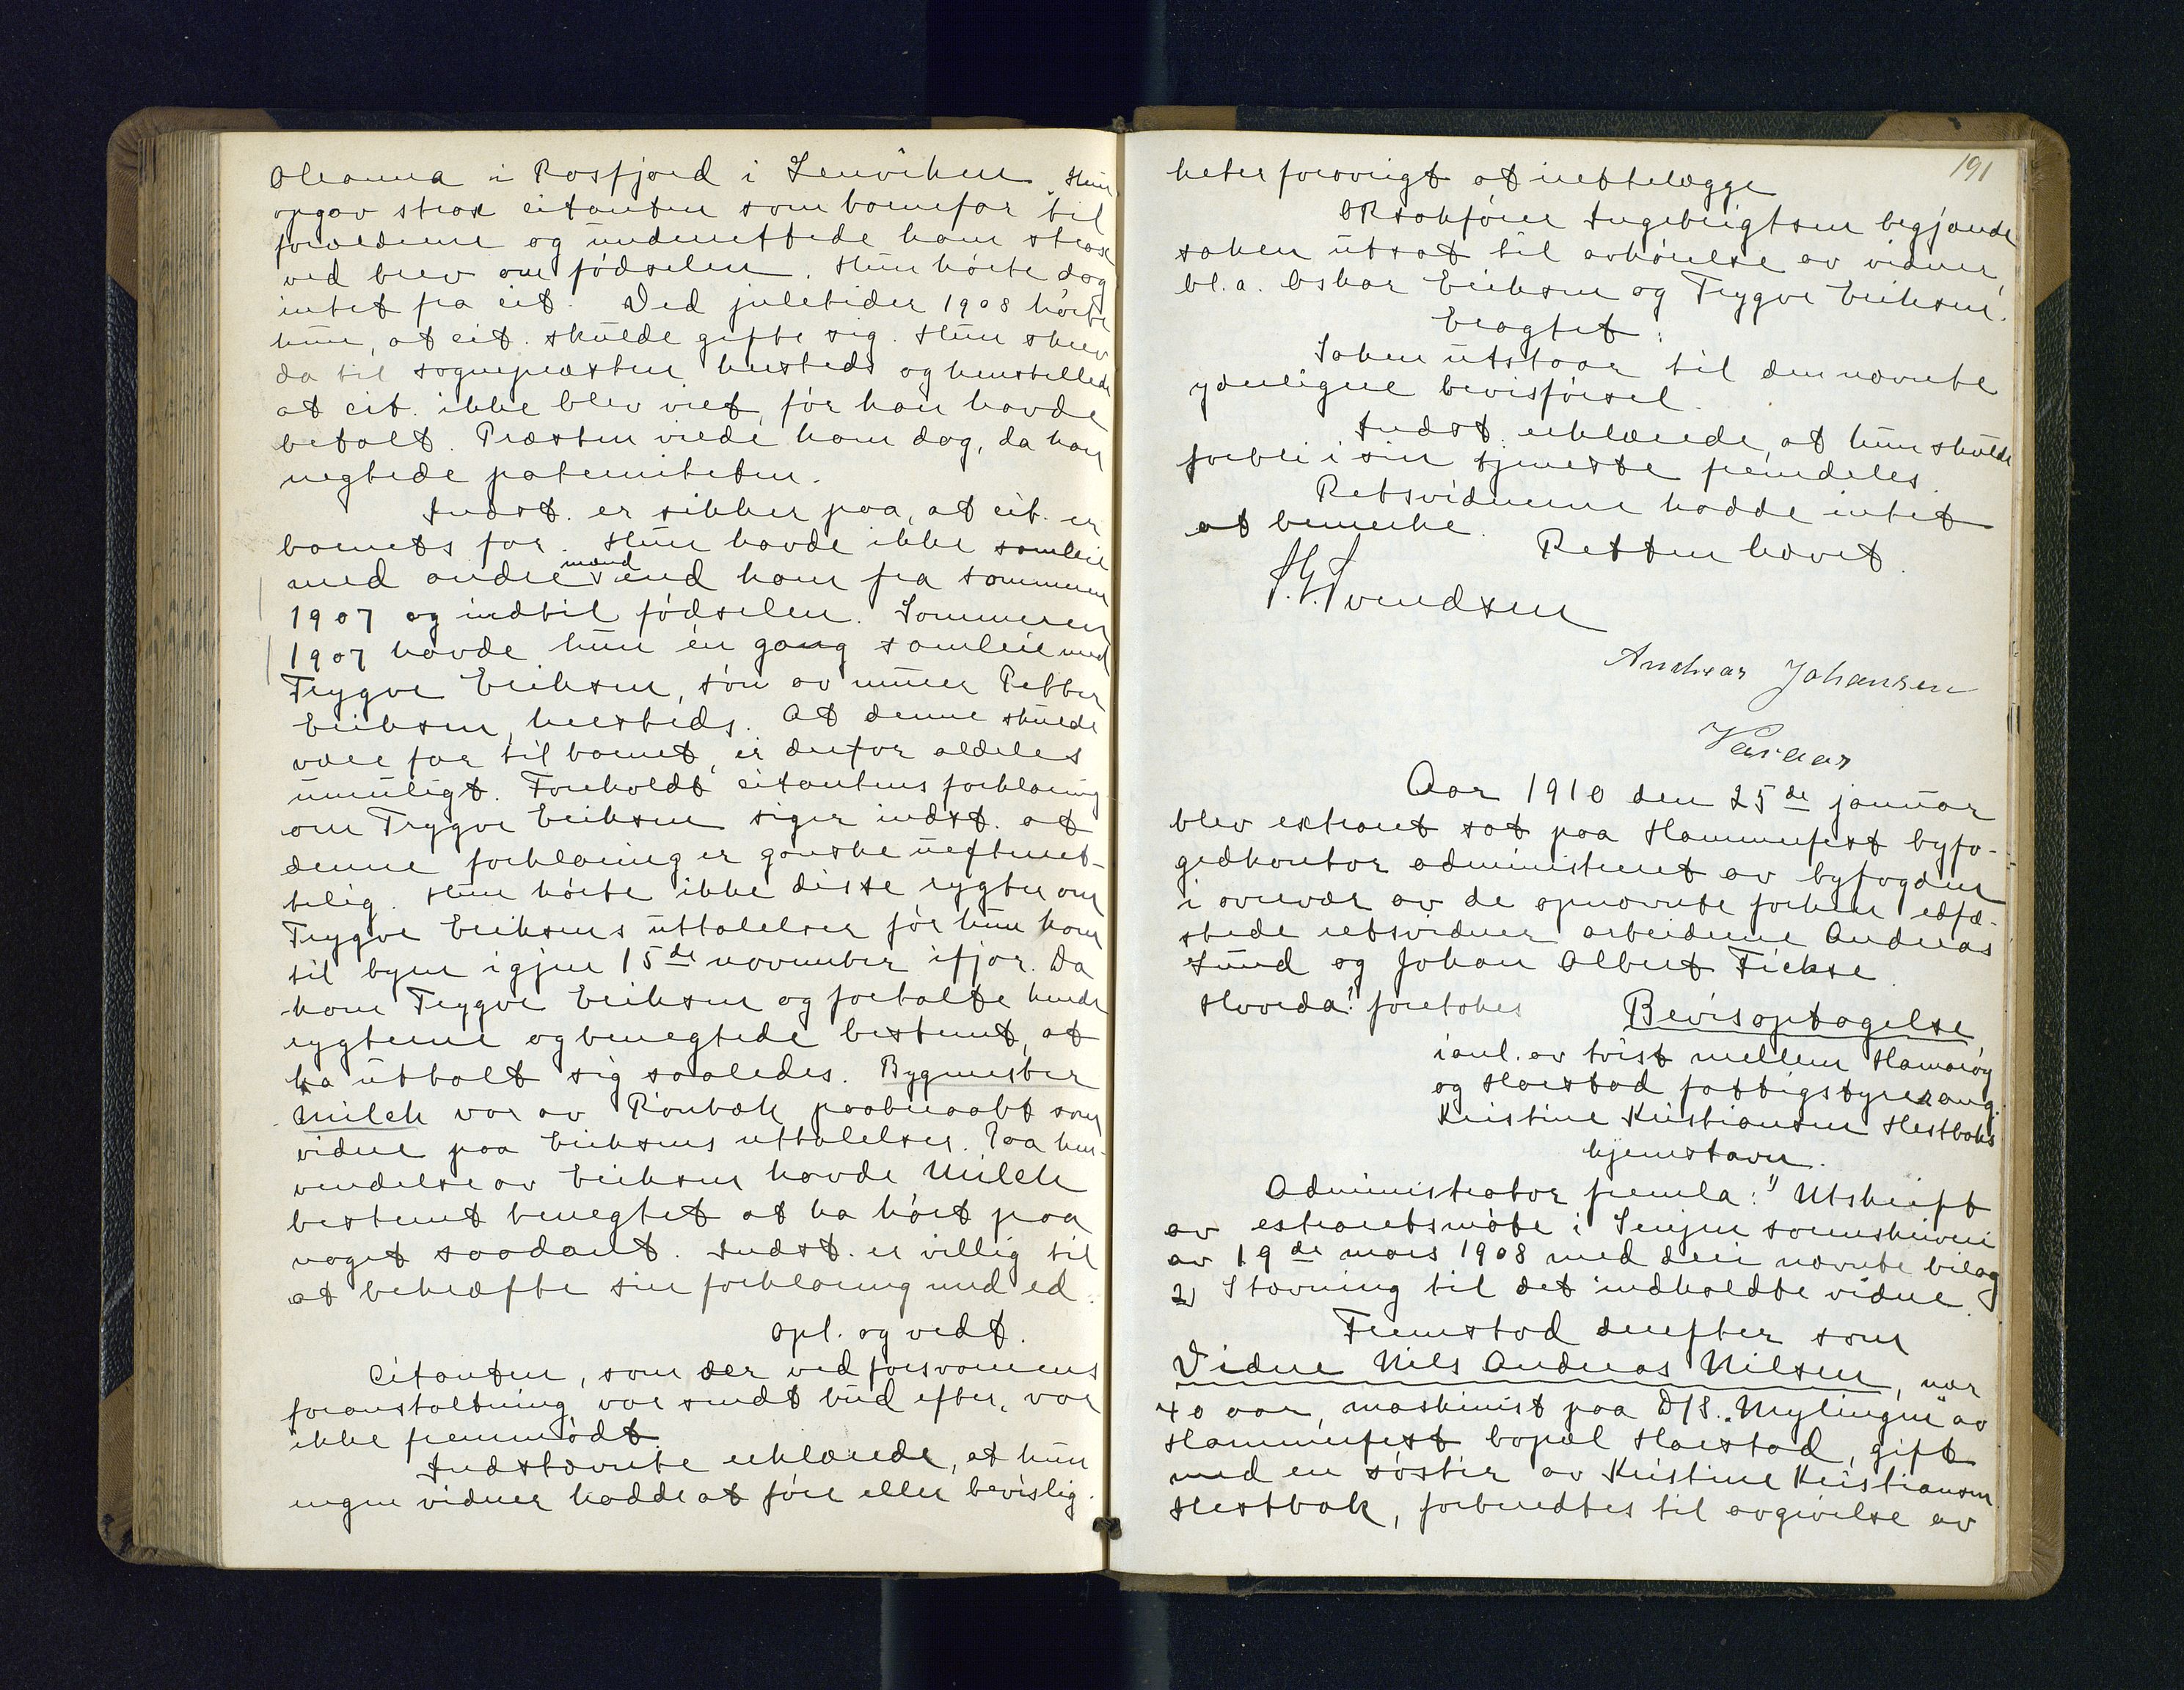 Oleanna i Rosfjord i Lenviken. Hun
opgav strax citanten som barnefar til
forældrene og underrettede ham strax
ved brev om fødselen. Hun hørte dog
intet fra cit. Ved juletider 1908 hørte
hun, at cit. skulde gifte sig. Hun skrev
da til sognepræsten hersteds og henstillede
at cit. ikke blev viet, før han havde
betalt. Præsten viede ham dog, da han
negtede paterniteten.
Indst. er sikker paa, at cit. er
barnets far. Hun havde ikke samleie
med andre mænd end ham fra sommeren
1907 og indtil fødselen. Sommeren
1907 havde hun én gang samleie med
Trygve Eriksen, søn av murer Petter
Eriksen, hersteds. At denne skulde
være far til barnet, er derfor aldeles
umuligt. Foreholdt citantens forklaring
om Trygve Eriksen siger indst. at
denne forklaring er ganske uefterret-
telig. Hun hørte ikke disse rygter om
Trygve Eriksens uttalelser før hun kom
til byen igjen 15de november ifjor. Da
kom Trygve Eriksen og fortalte hende
rygterne og benegtede bestemt, at
ha uttalt sig saaledes. Bygmester
Milch var av Rönbæk paaberaabt som
vidne paa Eriksens uttalelser. Paa hen-
vendelse av Eriksen havde Milch
bestemt benegtet at ha hørt paa
noget saadant. Indst. er villig til
at bekræfte sin forklaring med ed.
Opl. og vedt.
Citanten, som der ved forsvarerens
foranstaltning var sendt bud efter, var
ikke fremmødt.
Indstævnte erklærede, at hun
ingen vidner hadde at føre eller bevislig-
191
heter forøvrigt at irettelægge
ORsakfører Ingebrigtsen begjærede
saken utsat til avhørelse av vidner,
bl.a. Eskar Eriksen og Trygve Eriksen.
Eragtet:
Saken utstaar til den nævnte
yderligere bevisførsel.
Indst. erklærede, at hun skulde
forbli i sin tjeneste fremdeles.
Retsvidnerne hadde intet
at bemerke. Retten hævet.
Svendsen
Andreas Johansen
Aar 1910 den 25de januar
blev extraret sat paa Hammerfest byfo-
gedkontor administreret av byfogden
i overvær av de opnævnte forhen edfæ-
stede retsvidner arbeiderne Andreas
Lund og Johan Albert Fickse
Hvorda! foretokes Bevisoptagelse
i anl. av tvist mellem Hamarøy
og Harstad fattigstyrer ang.
Kristine Kristiansen Hestbaks
hjemstavn.
Administrator fremla: 1) Utskrift
av extraretsmøte i Senjen sorenskriveri
av 19de mars 1908 med deri nævnte bilag
2) Stævning til det indkaldte vidne.
Fremstod derefter som
Vidne Nils Andreas Nilsen, nær
40 aar, maskinist paa D/S. "Mylingen" av
Hammerfest bopæl Harstad, gift
med en søster av Kristine Kristiansen
Hestbak, forberedtes til avgivelse av